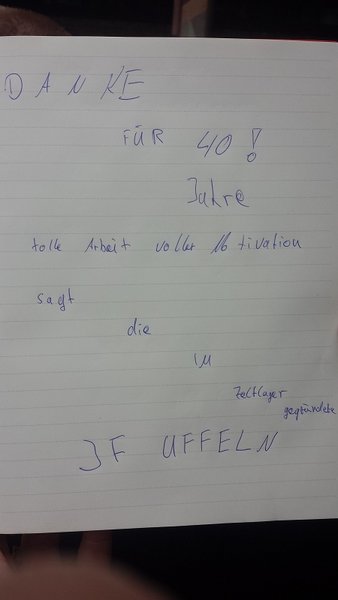 DANKE
FÜR 40!
Jahre
tolle Arbeit voller Motivation
sagt
die
im
Zeltlager
gegründete
JF UFFELN